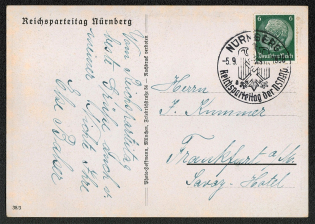 Reichsparteitag Nürnberg
Vom Reichsparteitag
beste Grüße
Photo-Hoffmann, München, Friedrichstraße 34 - Nachdruck verboten
NÜRNBERG
-5.9.
Reichsparteitag der NSDAP
6
6
Deutsches Reich
Herrn
J. Kummer
Frankfurt a/M.
Savoy-Hotel
38/3